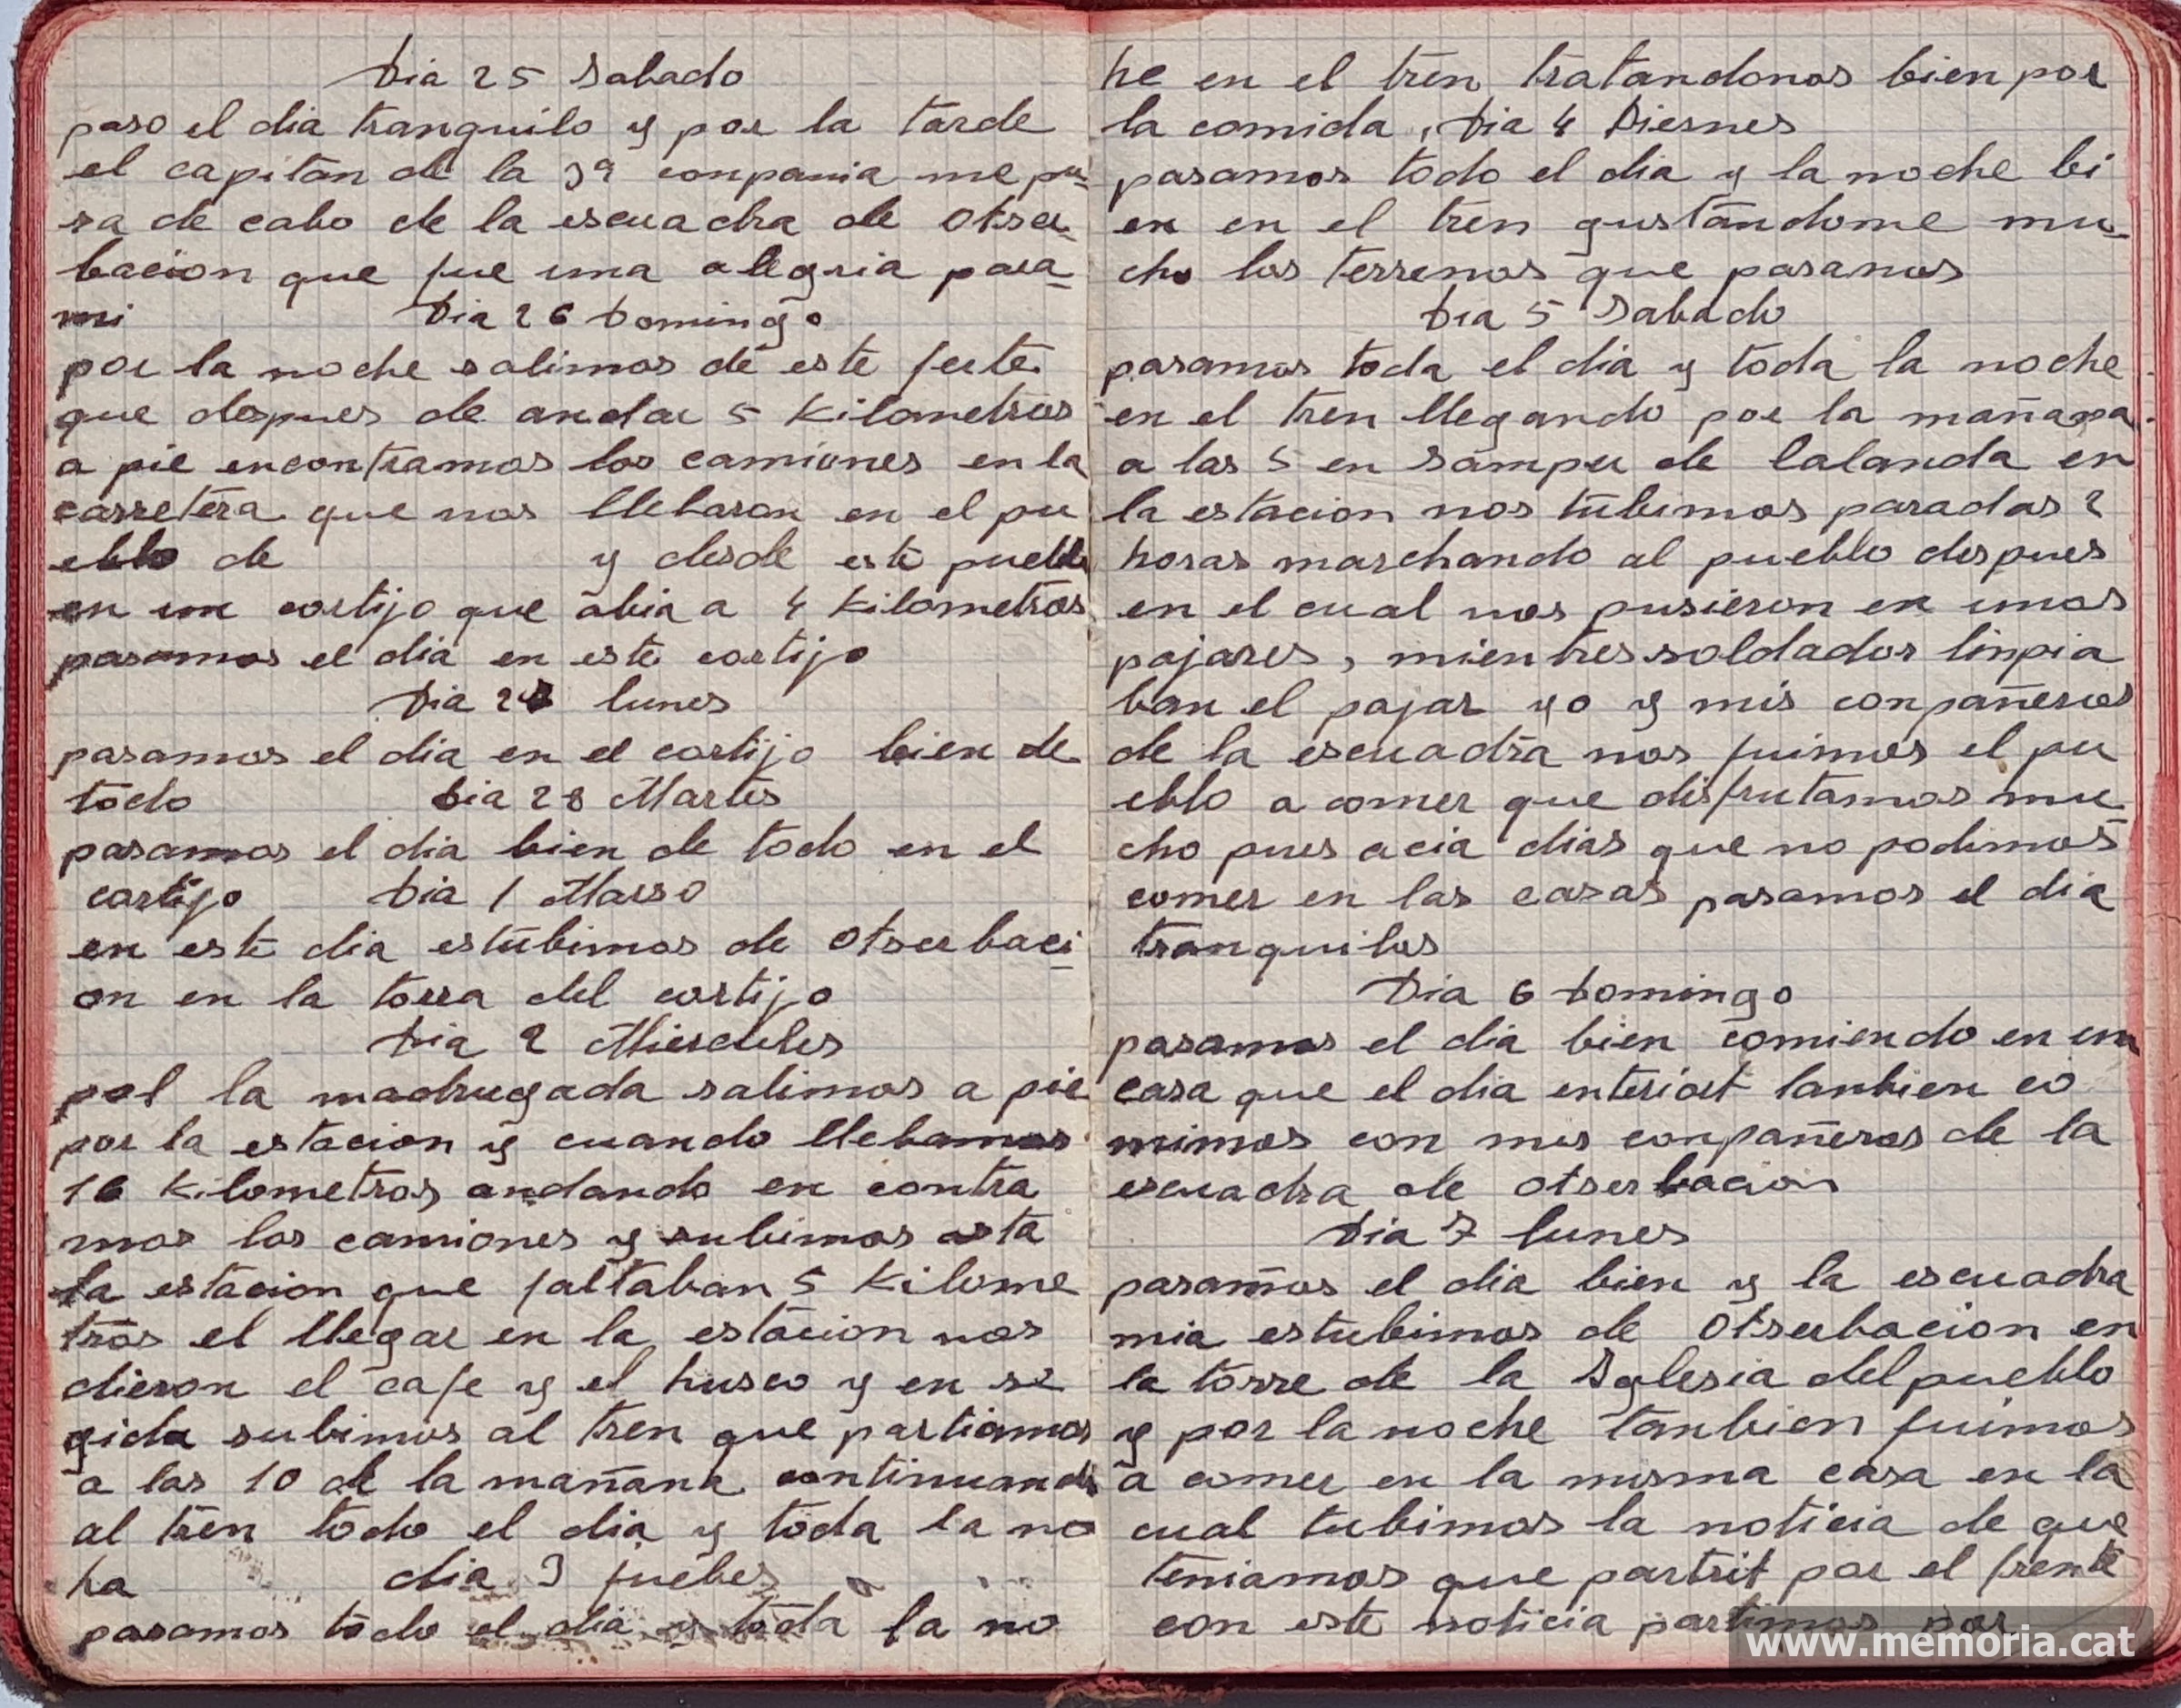 Dia 25 Sabado
paso el dia tranquilo y por la tarde
el capitan de la 3ª conpania me pu-
sa de cabo de la escuadra de otser-
bacion que fue una alegria para-
mi Dia 26 Domingo
por la noche salimos de este
que despues de andar 5 Kilometros
a pie encontramos los camiones en la
carretera que nos llebaron en el pu
eblo de y desde este pueblo
en un cortijo que abia a 4 Kilometros
pasamos el dia en este cortijo
Dia 27 lunes
pasamos el dia en el cortijo bien de
todo Dia 28 Martes
pasamos el dia bien de todo en el
cortijo Dia 1 Marso
en este dia estubimos de otserbaci-
on en la torra del cortijo
Dia 2 Miercules
pol la madrugada salimos a pie
por la estacion y cuando llebamos
16 Kilometros andando en contra
mos los camiones y subimos asta
la estacion que faltaban 5 Kilome
tros el llegar en la estacion nos
dieron el cafe y el husco y en se
gida subimos al tren que partiamos
a las 10 de la mañana continuando
al tren todo el dia y toda la no
ha dia 3 juebes
pasamos todo el dia y toda la no
he en el tren tratandonos bien por
la comida, Dia 4 Biernes
pasamos todo el dia y la noche bi
en en el tren gustandome mu-
cho los terrenos que pasamos
Dia 5 Sabado
pasamos toda el dia y toda la noche
en el tren llegando por la mañana
a las 5 en Samper de Calanda en
la estacion nos tubimos paradas 2
horas marchando al pueblo despues
en el cual nos pusieron en unos
pajares, mientres soldados linpia
ban el pajar yo y mis conpañeros
de la escuadra nos fuimos el pu
eblo a comer que disfrutamos mu
cho pues acia dias que no podimos
comer en las casas pasamos el dia
tranquilos
Dia 6 Domingo
pasamos el dia bien comiendo en una
casa que el dia enteriort tanbien co
mimos con mis conpañeros de la
escuadra de otserbacion
Dia 7 lunes
pasamos el dia bien y la escuadra
mia estubimos de Otserbacion en
la torre de la Iglesia del pueblo
y por la noche tanbien fuimos
a comer en la misma casa en la
cual tubimos la noticia de que
teniamos que partrit por el frente
con este noticia partimos por
www.memoria.cat